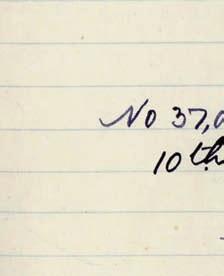 No 37,
10th